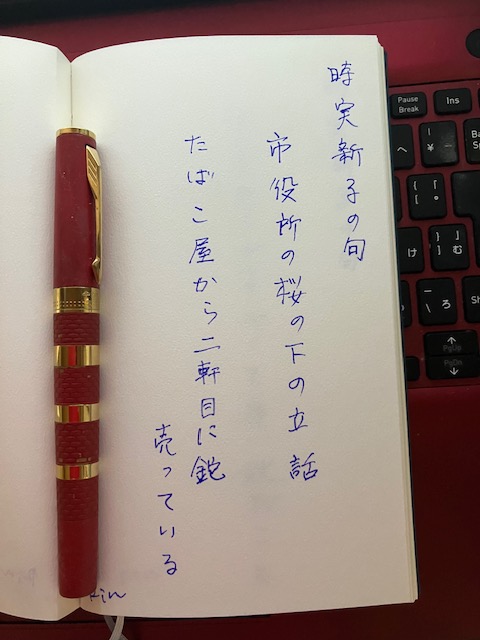 時実新子の句
市役所の桜の下の立話
たばこ屋から二軒目に
売っている
Fin
Pause
Break
Ins
へ
¥ ー
{ 「
[ ゜
け
} 」
] む
\ ろ
PgUp
PgDn